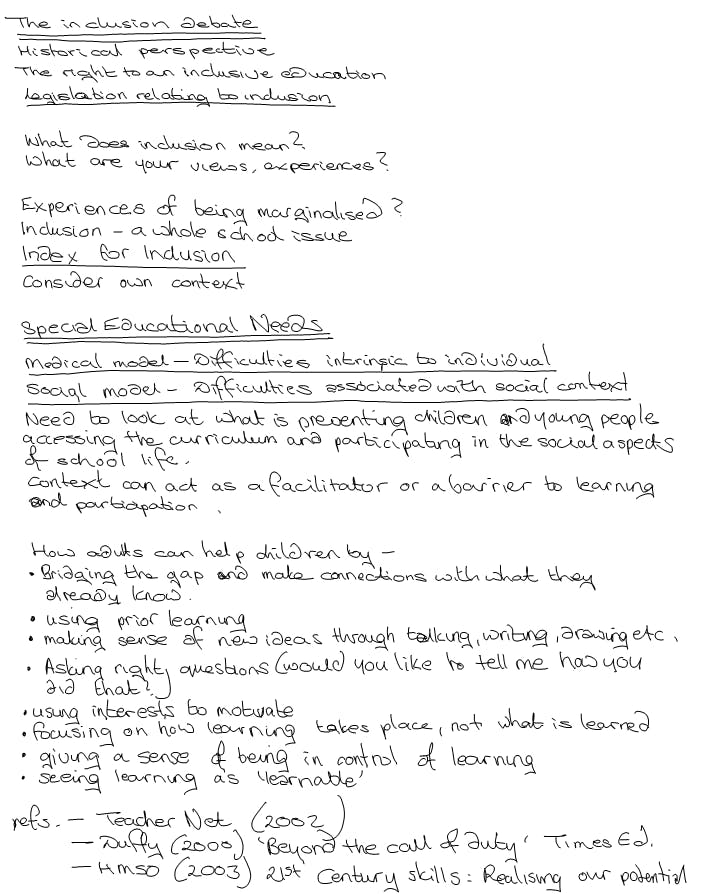 The inclusion Debate
Historical perspective
The right to an inclusive education
Legislation relating to inclusion
What does inclusion mean?
What are your views, experiences?
Experiences of being marginalised?
Inclusion - a whole school issue
Index for Inclusion
Consider own context
Special Educational Needs
Medical model - Difficulties intrinsic to individual
Social model - Difficulties associated with social context
Need to look at what is preventing children and young people
accessing the curriculum and participating in the social aspects
of school life.
Context can act as a facilitator or a barrier to learning
and participation.
How adults can help children by -
• Bridging the gap and make connections with what they
already know.
• using prior learning
• making sense of new ideas through talking, writing, drawing etc.
• Asking right questions (would) you like to tell me how you
did that?)
• using interests to motivate
• focusing on how learning takes place, not what is learned
• giving a sense of being in control of learning
• seeing learning as 'learnable'
refs. - Teacher Net (2002)
- Duffy (2000) 'Beyond the call of duty' Times Ed.
- HMSO (2003) 21st Century skills: Realising our potential